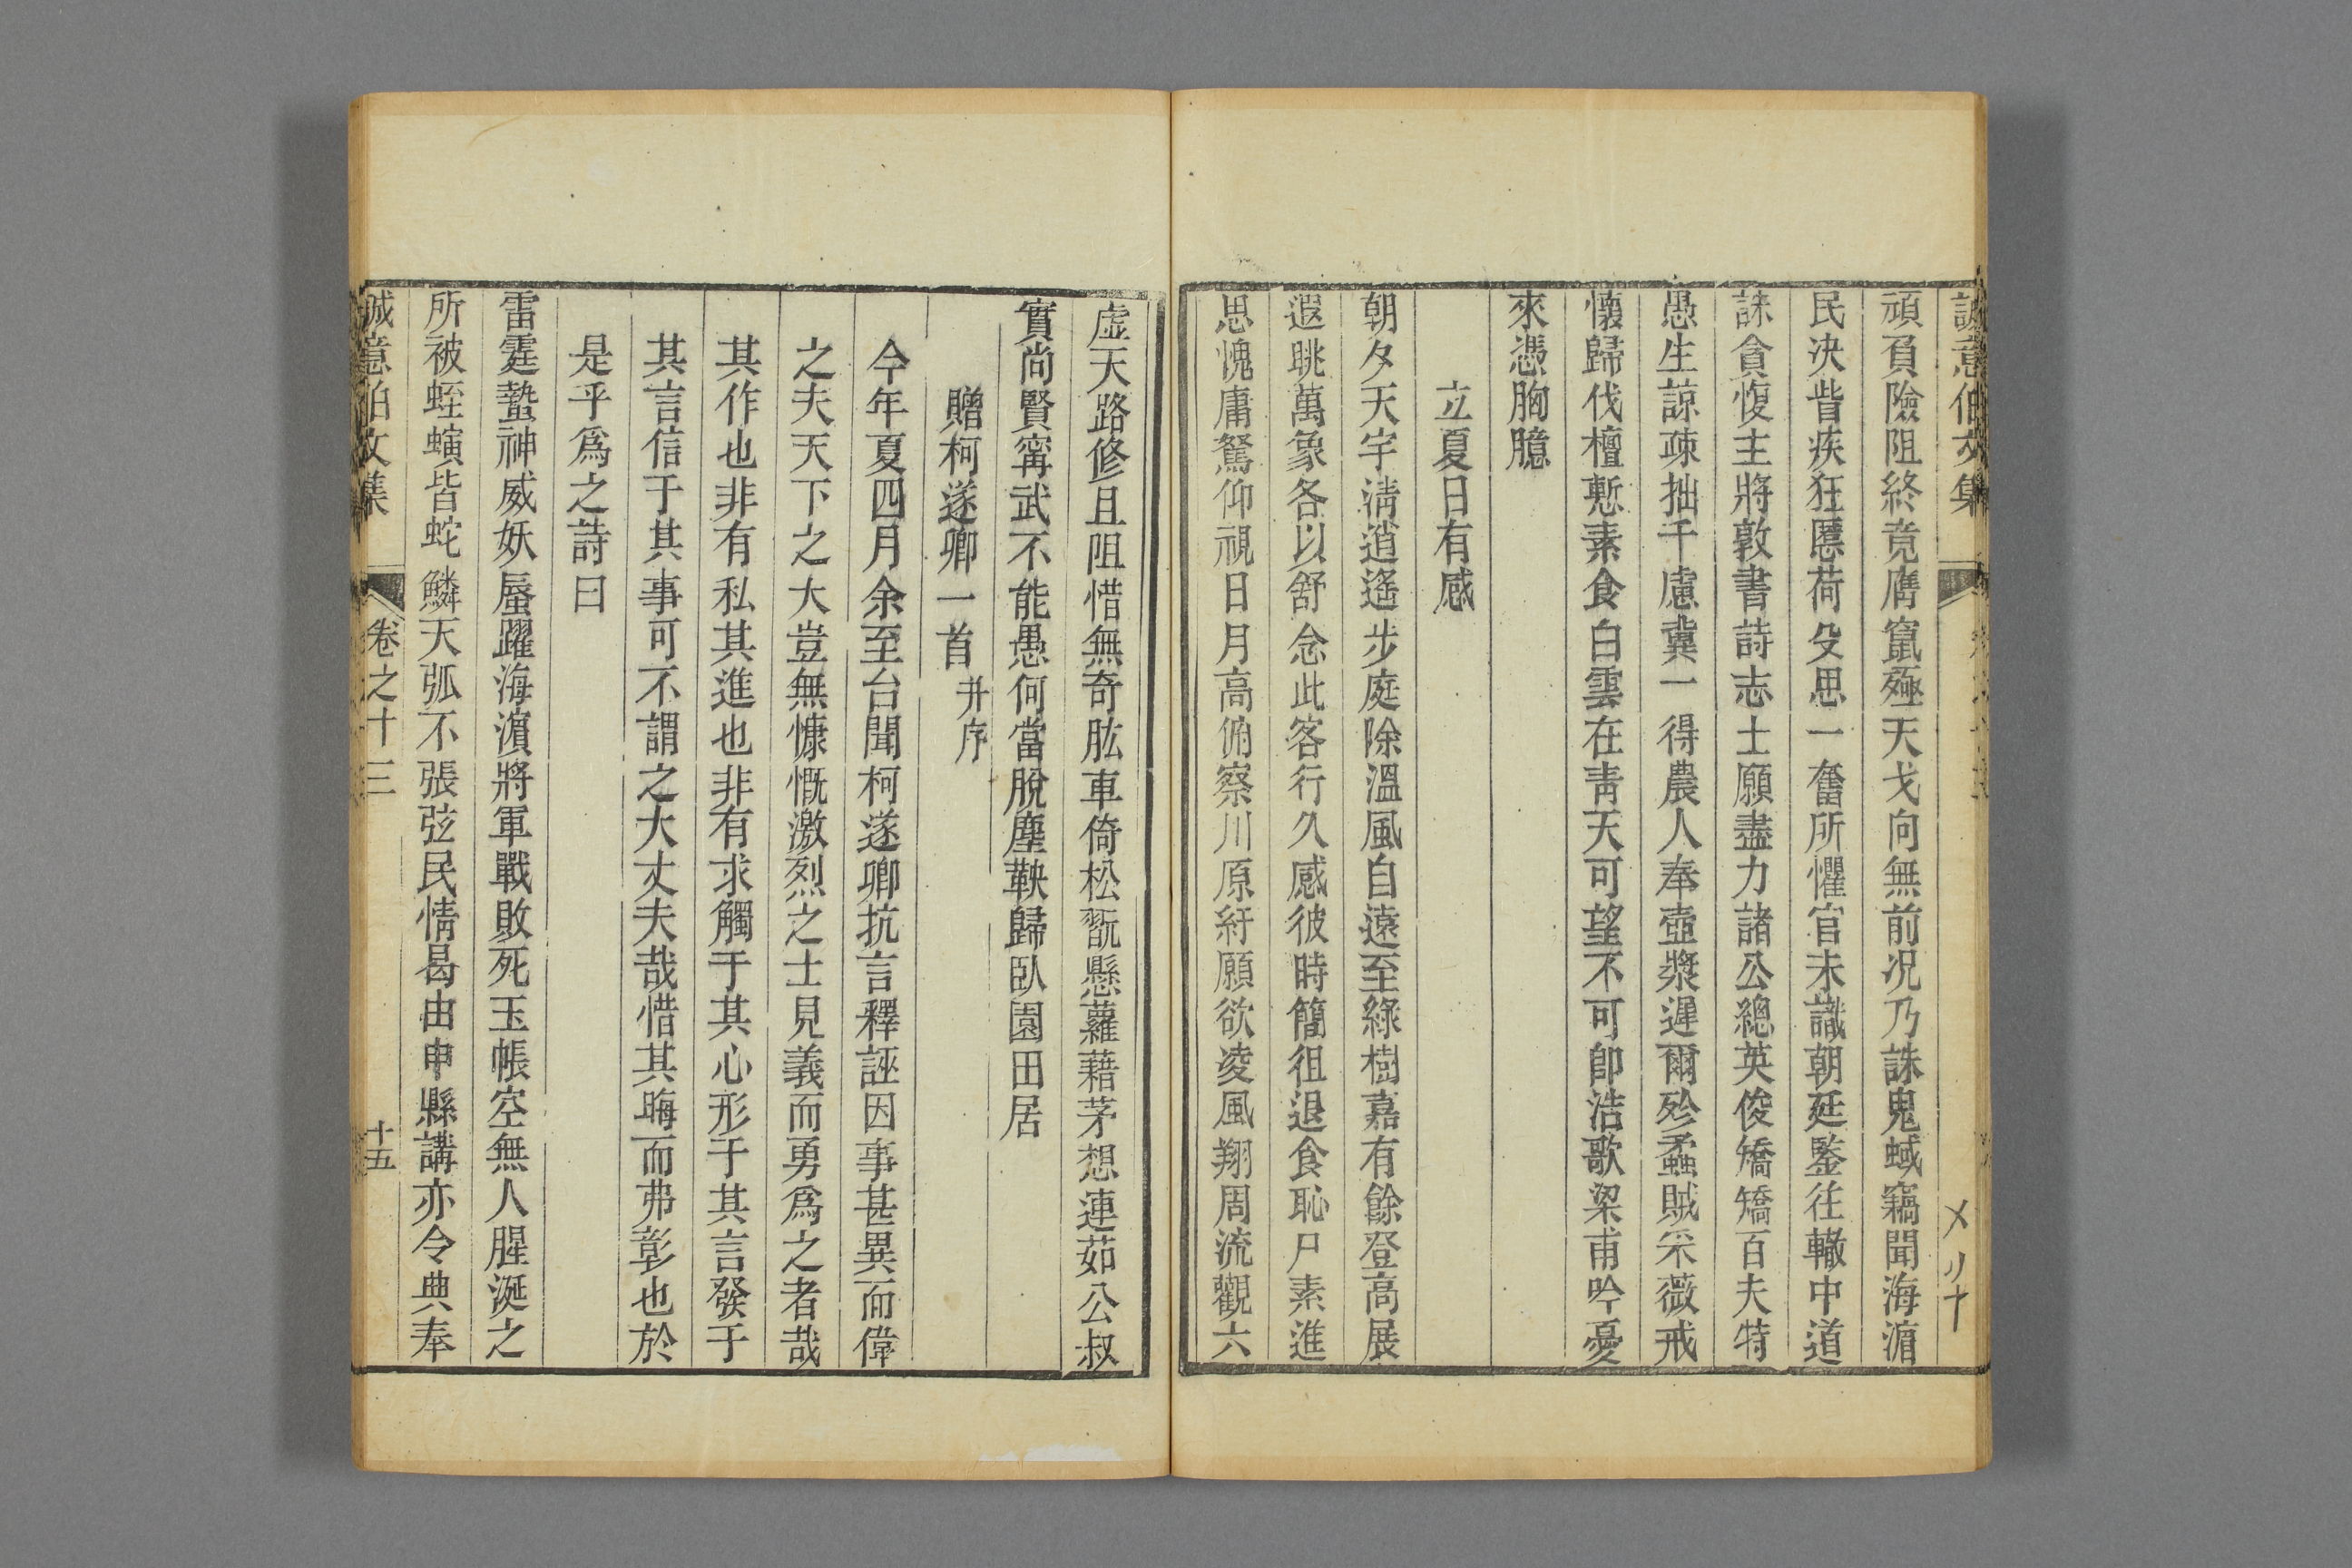 誠意伯文集
頑負險阻終竟膺竄殛天戈向無前况乃誅鬼蜮竊聞海濱
民決眥疾狂慝荷殳思一奮所懼官未識朝廷鑒往轍中道
誅貪愎主將敦書詩志士願盡力諸公總英俊矯矯百夫特
愚生諒疎拙千慮冀一得農人奉壺漿遲爾殄蟊賊采薇戒
懷歸伐檀慙素食白雲在靑天可望不可卽浩歌梁甫吟憂
來憑胸臆
立夏日有感
朝夕天宇淸逍遙步庭除溫風自遠至綠樹嘉有餘登高展
遐眺萬象各以舒念此客行久感彼時簡徂退食恥尸素進
思愧庸駑仰視日月高俯察川原紆願欲凌風翔周流觀六
虛天路修且阻惜無奇肱車倚松翫懸蘿藉茅想連茹公叔
實尚賢甯武不能愚何當脫塵鞅歸臥園田居
贈柯遂卿一首 并序
今年夏四月余至台聞柯遂卿抗言釋誣因事甚異而偉
之夫天下之大豈無慷慨激烈之士見義而勇爲之者哉
其作也非有私其進也非有求觸于其心形于其言發于
其言信于其事可不謂之大丈夫哉惜其晦而弗彰也於
是乎爲之詩曰
雷霆蟄神威妖蜃躍海濵將軍戰敗死玉帳空無人腥涎之
所被蛭螾皆蛇鱗天弧不張弦民情曷由申縣講亦令典奉
誠意伯文集 卷之十三 十五